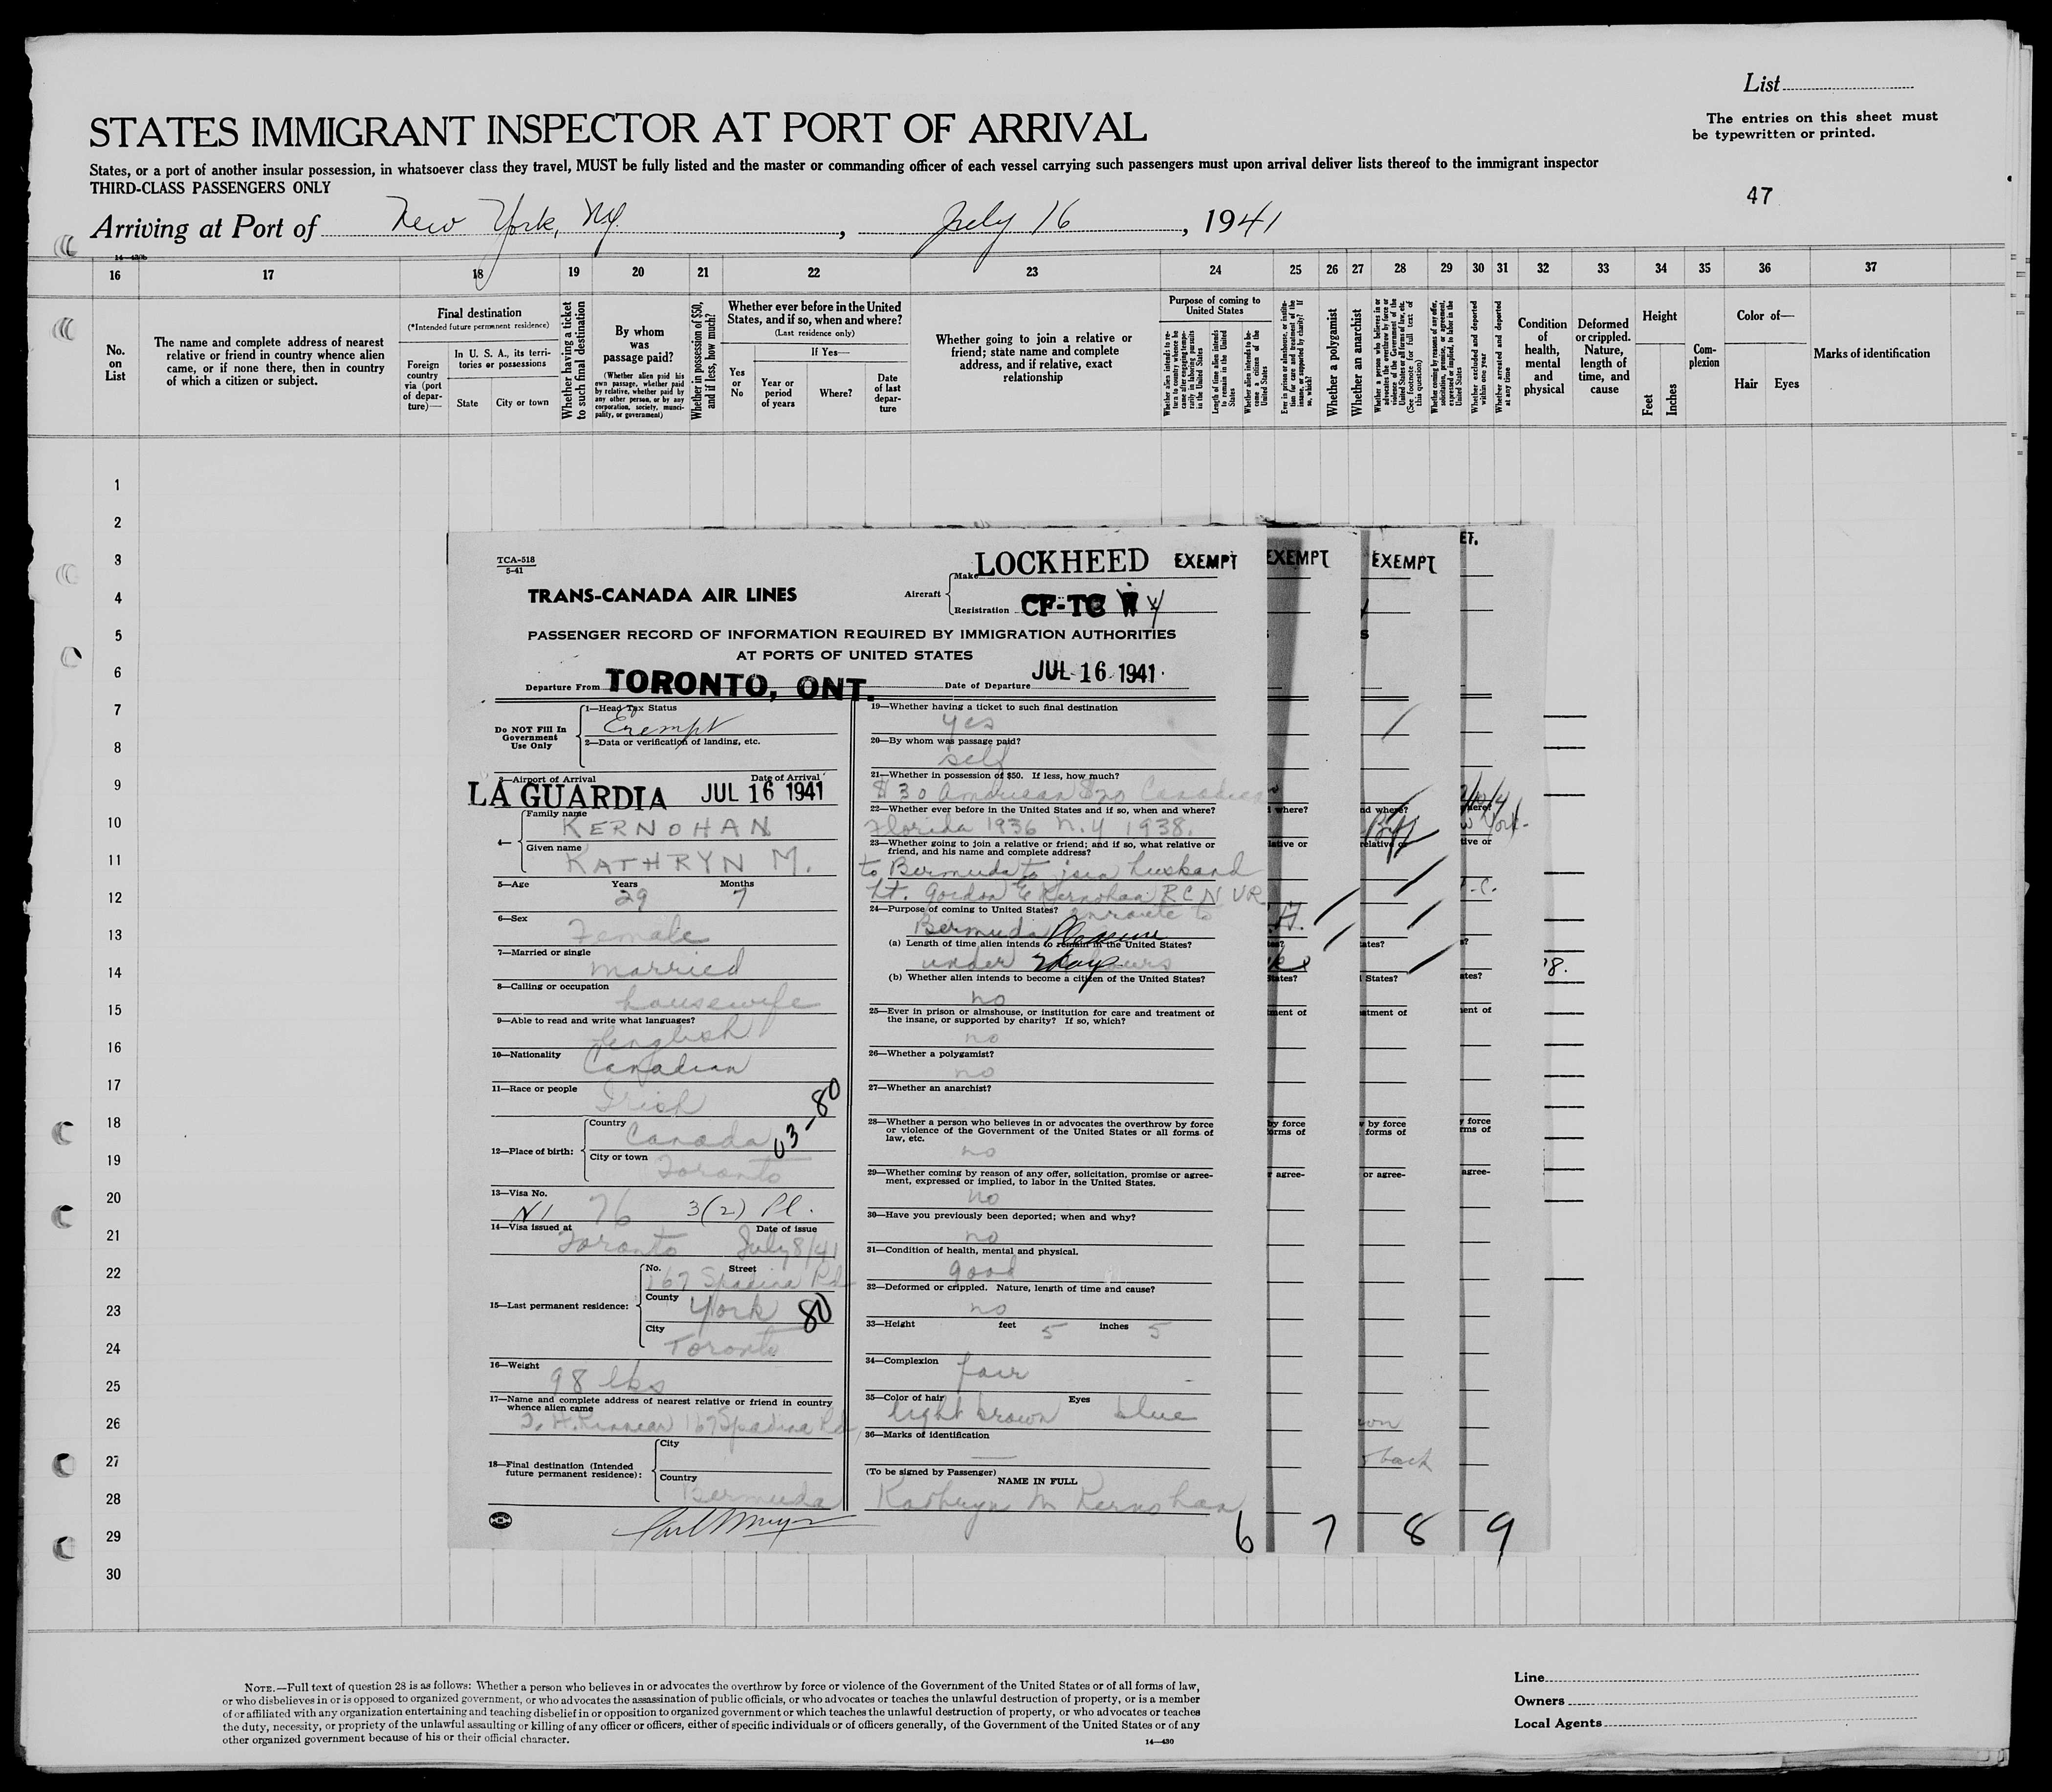 List
The entries on this sheet must
be typewritten or printed.
STATES IMMIGRANT INSPECTOR AT PORT OF ARRIVAL
States, or a port of another insular possession, in whatsoever class they travel, MUST be fully listed and the master or commanding officer of each vessel carrying such passengers must upon arrival deliver lists thereof to the immigrant inspector
THIRD-CLASS PASSENGERS ONLY
47
Arriving at Port of New York, NY. , July 16 , 1941
14—430b
16 17 18 19 20 21 22 23 24 25 26 27 28 29 30 31 32 33 34 35 36 37
No. on List
The name and complete address of nearest
relative or friend in country whence alien
came, or if none there, then in country
of which a citizen or subject.
Final destination
(*Intended future permanent residence)
Foreign country via (port of departure)—
In U. S. A., its territories or possessions
State
City or town
Whether having a ticket to such final destination
By whom was passage paid?
(Whether alien paid his own passage, whether paid by relative, whether paid by any other person, or by any corporation, society, municipality, or government)
Whether in possession of $50, and if less, how much?
Whether ever before in the United States, and if so, when and where?
(Last residence only)
Yes or No
If Yes—
Year or period of years
Where?
Date of last departure
Whether going to join a relative or
friend; state name and complete
address, and if relative, exact
relationship
Purpose of coming to United States
Whether alien intends to return to country whence he came after engaging temporarily in laboring pursuits in the United States
Length of time alien intends to remain in the United States
Whether alien intends to become a citizen of the United States
Ever in prison or almshouse, or institution for care and treatment of the insane, or supported by charity? If so, which?
Whether a polygamist
Whether an anarchist
Whether a person who believes in or advocates the overthrow by force or violence of the Government of the United States or all forms of law, etc. (See footnote for full text of this question)
Whether coming by reasons of any offer, solicitation, promise, or agreement, expressed or implied, to labor in the United States
Whether excluded and deported within one year
Whether arrested and deported at any time
Condition of health, mental and physical
Deformed or crippled. Nature, length of time, and cause
Height
Feet
Inches
Complexion
Color of—
Hair Eyes
Marks of identification
1
2
3
4
5
6
7
8
9
10
11
12
13
14
15
16
17
18
19
20
21
22
23
24
25
26
27
28
29
30
TCA-518
5-41
TRANS-CANADA AIR LINES
Aircraft
Make LOCKHEED EXEMPT
Registration CF-TC Y
PASSENGER RECORD OF INFORMATION REQUIRED BY IMMIGRATION AUTHORITIES
AT PORTS OF UNITED STATES
Departure From TORONTO, ONT. Date of Departure JUL 16 1941
Do NOT Fill In
Government
Use Only
1—Head Tax Status
Exempt
2—Data or verification of landing, etc.
3—Airport of Arrival Date of Arrival
LA GUARDIA JUL 16 1941
4—
Family name
KERNOHAN
Given name
KATHRYN M.
5—Age Years Months
29 7
6—Sex
Female
7—Married or single
married
8—Calling or occupation
housewife
9—Able to read and write what languages?
English
10—Nationality
Canadian
11—Race or people
Irish
03-80
12—Place of birth:
Country
Canada
City or town
Toronto
13—Visa No.
NI 76 3(2) Pl.
14—Visa issued at Date of issue
Toronto July 8/41
15—Last permanent residence:
No. Street
167 Spadina Rd
County
York 80
City
Toronto
16—Weight
98 lbs
17—Name and complete address of nearest relative or friend in country
whence alien came
167 Spadina Rd
18—Final destination (Intended
future permanent residence):
City
Country
Bermuda
19—Whether having a ticket to such final destination
yes
20—By whom was passage paid?
self
21—Whether in possession of $50. If less, how much?
$30 American $20 Canadian
22—Whether ever before in the United States and if so, when and where?
Florida 1936 N.Y 1938.
23—Whether going to join a relative or friend; and if so, what relative or
friend, and his name and complete address?
to Bermuda to join husband
Lt. Gordon E Kernohan R C N V R
24—Purpose of coming to United States?
enroute to
Bermuda Pleasure
(a) Length of time alien intends to remain in the United States?
under 2 days hours
(b) Whether alien intends to become a citizen of the United States?
no
25—Ever in prison or almshouse, or institution for care and treatment of
the insane, or supported by charity? If so, which?
no
26—Whether a polygamist?
no
27—Whether an anarchist?
28—Whether a person who believes in or advocates the overthrow by force
or violence of the Government of the United States or all forms of
law, etc.
no
29—Whether coming by reason of any offer, solicitation, promise or agree-
ment, expressed or implied, to labor in the United States.
no
30—Have you previously been deported; when and why?
no
31—Condition of health, mental and physical.
good
32—Deformed or crippled. Nature, length of time and cause?
no
33—Height feet 5 inches 5
34—Complexion
fair
35—Color of hair Eyes
light brown blue
36—Marks of identification
(To be signed by Passenger)
NAME IN FULL
Kathryn M Kernohan
6 7 8 9
EXEMPT
EXEMPT
NOTE.—Full text of question 28 is as follows: Whether a person who believes in or advocates the overthrow by force or violence of the Government of the United States or of all forms of law,
or who disbelieves in or is opposed to organized government, or who advocates the assassination of public officials, or who advocates or teaches the unlawful destruction of property, or is a member
of or affiliated with any organization entertaining and teaching disbelief in or opposition to organized government or which teaches the unlawful destruction of property, or who advocates or teaches
the duty, necessity, or propriety of the unlawful assaulting or killing of any officer or officers, either of specific individuals or of officers generally, of the Government of the United States or of any
other organized government because of his or their official character.
14—430
Line
Owners
Local Agents